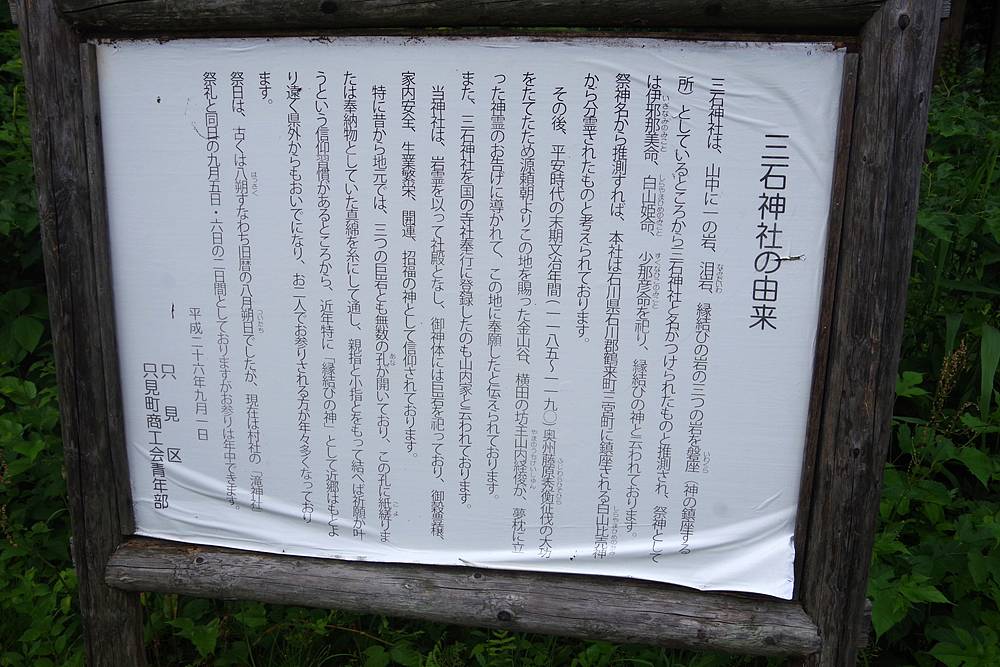 三石神社の由来
三石神社は、山中に一の岩、泪岩、縁結びの岩の三つの岩を磐座（神の鎮座する
所）としているところから三石神社と名がつけられたものと推測され、祭神として
は伊那那美命、白山姫命、少那彦命を祀り、縁結びの神と云われております。
祭神名から推測すれば、本社は石川県石川郡鶴来町三宮町に鎮座される白山比売神
から分霊されたものと考えられております。
その後、平安時代の末期文治年間（一一八五～一一九〇）奥州藤原秀衡征伐の大功
をたてたため源頼朝よりこの地を賜った金山谷、横田の坊主山内経俊が、夢枕に立
った神霊のお告げに導かれて、この地に奉願したと伝えられております。
また、三石神社を国の寺社奉行に登録したのも山内家と云われております。
当神社は、岩霊を以って社殿となし、御神体には巨岩を祀っており、御穀豊穣、
家内安全、生業繁栄、開運、招福の神として信仰されております。
特に昔から地元では、三つの巨岩とも無数の孔が開いており、この孔に紙縒りま
たは奉納物としていた真綿を糸にして通し、親指と小指とをもって結べば祈願が叶
うという信仰習慣があるところから、近年特に「縁結びの神」として近郷はもとよ
り遠く県外からもおいでになり、お二人でお参りされる方が年々多くなっており
ます。
祭日は、古くは八朔すなわち旧暦の八月朔日でしたが、現在は村社の「滝神社
祭礼と同日の九月五日・六日の二日間としておりますがお参りは年中できます。
平成二十六年九月一日
只見区
只見町商工会青年部